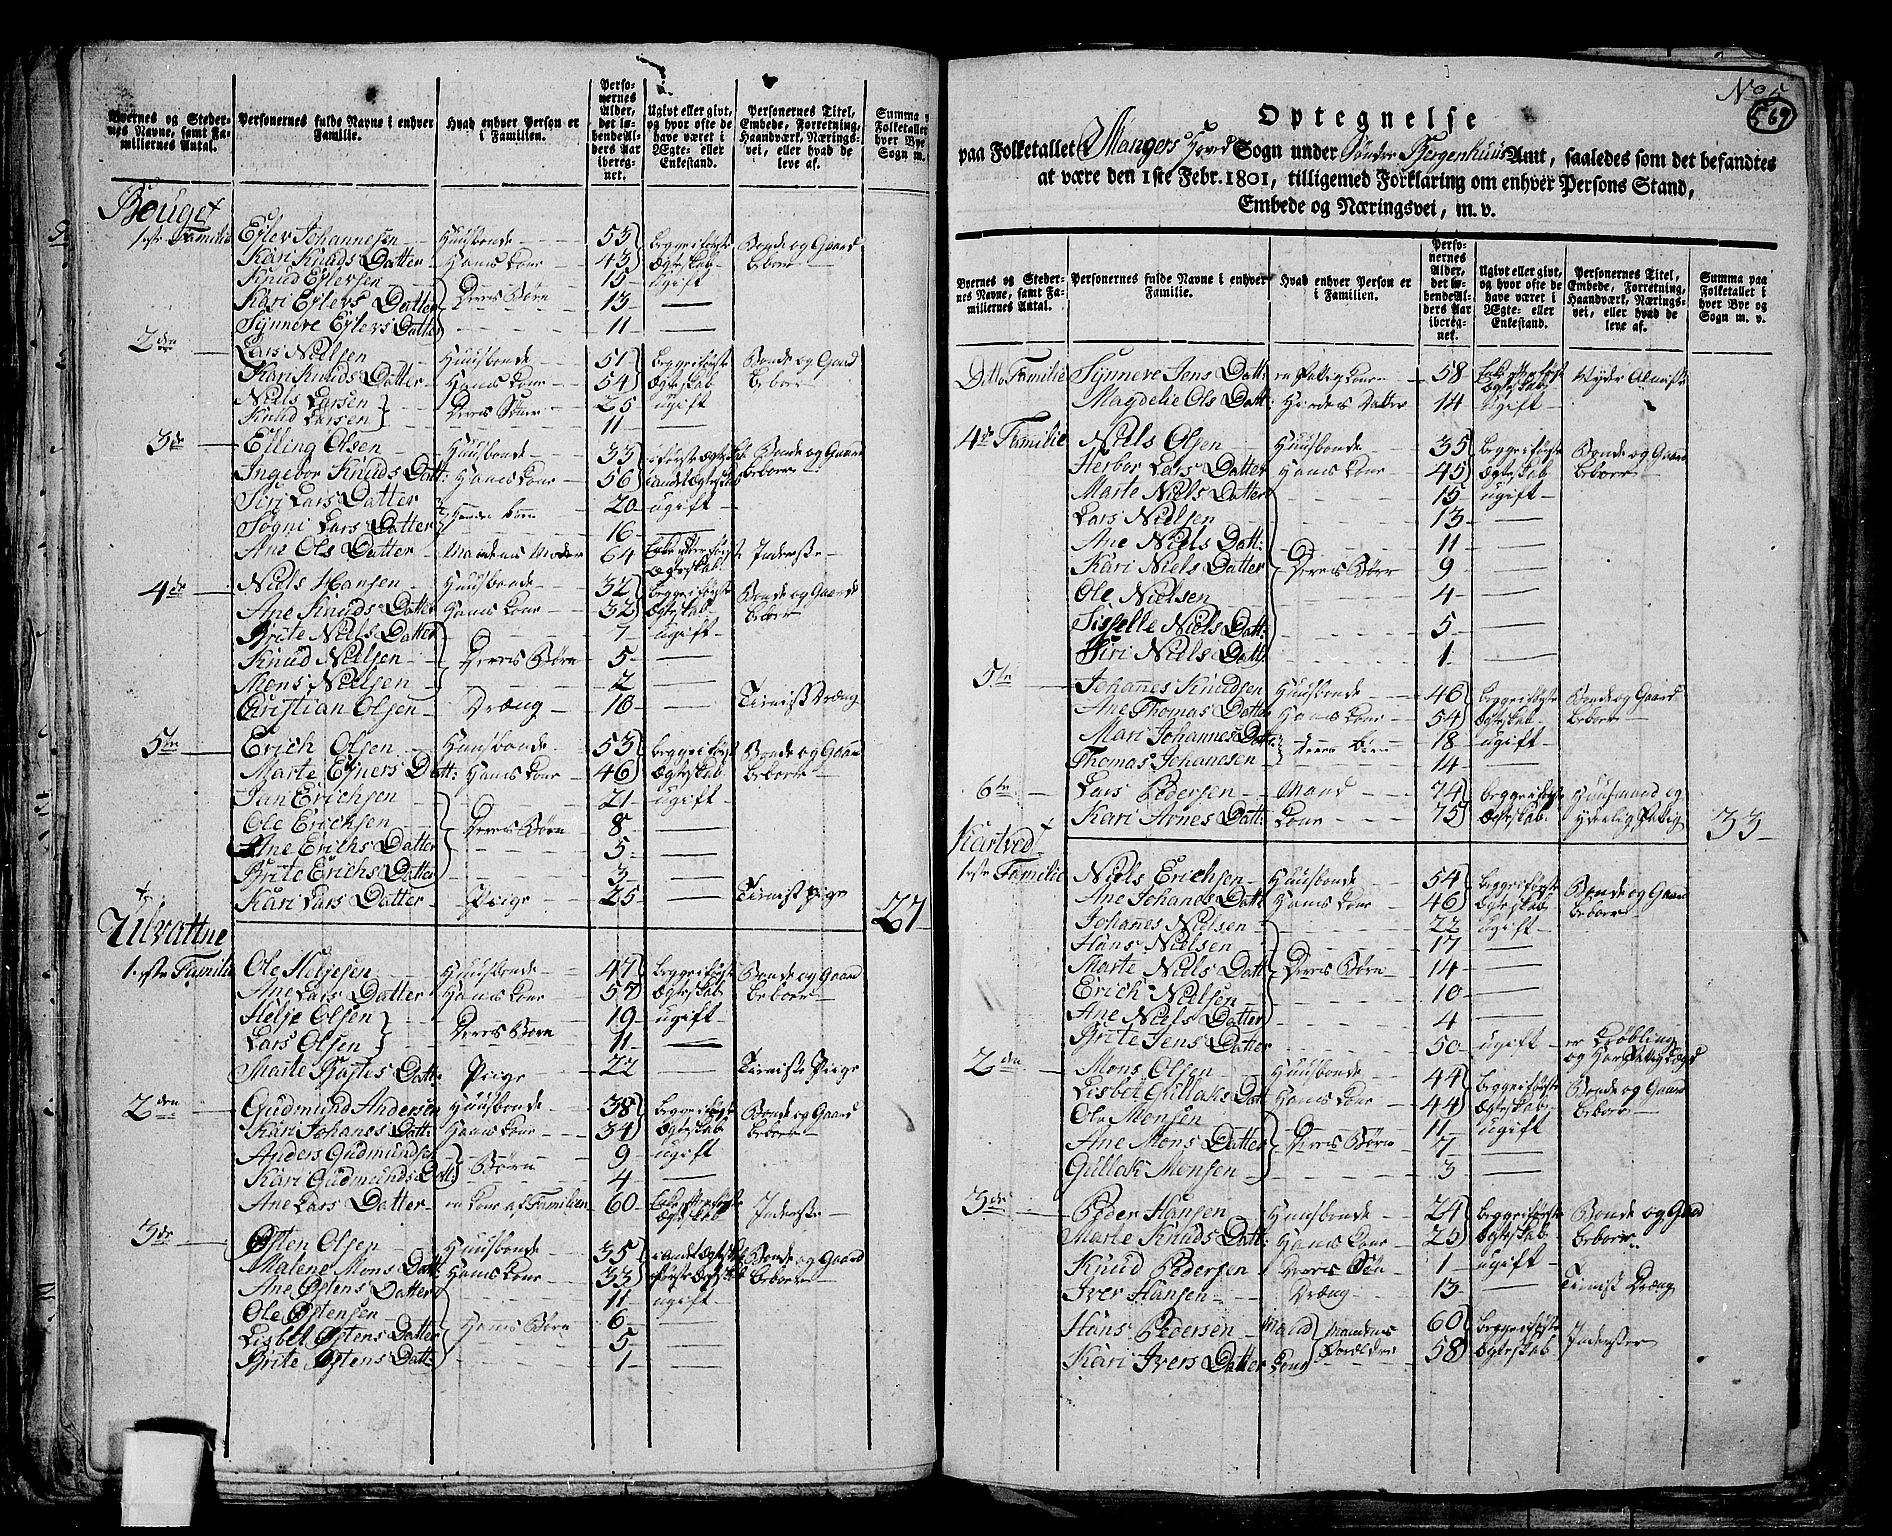 Byernes og Steder-
nes Navne, samt Fa-
miliernes Antal.
Personernes fulde Navne i enhver
Familie.
Hvad enhver Person er
i Familien.
Perso-
nernes
Alder,
det lø-
bende Al-
ders Aar
iberegn-
net.
Ugivt eller givt,
og hvor ofte de
have været i
Ægte- eller
Enkestand.
Personernes Titel,
Embede, Forretning,
Haandværk, Nærings-
vei, eller hvad de
leve af.
Summa p
Folketallet
hver Bye
Sogn m.
1ste Familie Ejlev Johannesen Huusbonde 53 begge i første Bonde og Gaard
Kari Knuds Datter Hans Kone 43 Ægteskab beboer
Knud Ejlevsen 15 ugift
Kari Ejlevs Datter Deres Børn 13 —
Synneve Ejlevs Datter 11 —
2den Lars Nielsen Huusbonde 51 begge i første Bonde og Gaard
Kari Knuds Datter Hans Kone 54 Ægteskab beboer
Niels Larsen Deres Sønner 25 ugift
Knud Larsen 11 —
3de Elling Olsen Huusbonde 33 i første Ægteskab Bonde og Gaard
Ingebor Knuds Datt: Hans Kone 56 i andet Ægteskab beboer
Siri Lars Datter 20 ugift
Søgni Lars Datter 16 —
Ane Ols Datter Mandens Moder 64 Enke efter første Inderste
Ægteskab
4de Niels Hansen Huusbonde 32 begge i første Bonde og Gaard
Ane Knuds Datter Hans Kone 32 Ægteskab beboer
Brite Niels Datter 7 ugift
Knud Nielsen Deres Børn 5 —
Mons Nielsen 2 —
Christian Olsen Dræng 16 — Tieniste Dræng
5te Erich Olsen Huusbonde 53 begge i første Bonde og Gaard
Marte Ejners Datt: Hans Kone 46 Ægteskab beboer
Jan Erichsen 21 ugift
Ole Erichsen Deres Børn 8 —
Ane Erichs Datter 5 —
Brite Erichs Datter 3 —
Kari Lars Datter Piige 25 — Tieniste Pige 27
Ulvattne
1ste Familie Ole Heljesen Huusbonde 47 begge i første Bonde og Gaard
Ane Lars Datter Hans Kone 57 Ægteskab beboer
Helje Olsen Deres Børn 19 ugift
Lars Olsen 11 —
Marte Datt: Piige 22 Tieniste Piige
2den Gudmund Andersen Huusbonde 38 begge i første Bonde og Gaard
Kari Johanes Datt: Hans Kone 34 Ægteskab beboer
Anders Gudmundsen Børn 9 ugift
Kari Gudmunds Datt: 4 —
Ane Lars Datter en Kone af Familien 60 Enke efter første Inderste
Ægteskab
3de Østen Olsen Huusbonde 35 i andet Ægteskab Bonde og Gaard
Malene Mons Datt: Hans Kone 33 første Ægteskab beboer
Ane Østens Datter 11 ugift
Ole Østensen Hans Børn 6 —
Lisbet Østens Datter 5 —
Brite Østens Datt: 1 —
No 5
569
Optegnelse
paa Folketallet Mangers Hoved Sogn under Sønder Bergenhuus Amt, saaledes som det befandtes
at være den 1ste Febr. 1801, tilligemed Forklaring om enhver Persons Stand,
Embede og Næringsvei, m. v.
Byernes og Steder-
nes Navne, samt Fa-
miliernes Antal.
Personernes fulde Navne i enhver
Familie.
Hvad enhver Person er
i Familien.
Perso-
nernes
Alder,
det lø-
bende Al-
ders Aar
iberegn-
net.
Ugivt eller givt,
og hvor ofte de
have været i
Ægte- eller
Enkestand.
Personernes Titel,
Embede, Forretning,
Haandværk, Nærings-
vei, eller hvad de
leve af.
Summa paa
Folketallet i
hver Bye og
Sogn m. v.
Ditto Familie Synneve Jens Datt: en Fattig Kone 58 Enke efter første Nyder Almisse
Ægteskab
Magdelie Ols Datt: Hendes Datter 14 ugift
4de Familie Niels Olsen Huusbonde 35 begge i første Bonde og Gaard
Herbor Lars Datter Hans Kone 45 Ægteskab beboer
Marte Niels Datter 15 ugift
Lars Nielsen 13 —
Ane Niels Datt: 11 —
Kari Niels Datter Deres Børn 9 —
Ole Nielsen 4 —
Sisselle Niels Datt: 5 —
Siri Niels Datt: 1 —
5te Johanes Knudsen Huusbonde 46 begge i første Bonde og Gaard
Ane Thomas Datter Hans Kone 54 Ægteskab beboer
Mari Johannes Datt: Deres Børn 18 ugift
Thomas Johanesen 14 —
6te Lars Pedersen Mand 74 begge i første Huusmand og
Kari Arnes Datt: Kone 75 Ægteskab yderlig Fattig 33
1ste Familie Niels Erichsen Huusbonde 54 begge i første Bonde og Gaard
Ane Johanes Datt: Hans Kone 46 Ægteskab beboer
Johanes Nielsen 22 ugift
Hans Nielsen 17 —
Marte Niels Datt: Deres Børn 14 —
Erich Nielsen 10 —
Ane Niels Datter 4 —
Brite Jens Datter 50 ugift er Krøbling
og
2den Mons Olsen Huusbonde 44 begge i første Bonde og Gaard
Lisbet Gullaks Datt: Hans Kone 44 Ægteskab beboer
Ole Monsen 11 ugift
Ane Mons Datter Deres Børn 7 —
Gullak Monsen 3 —
3de Peder Hansen Huusbonde 24 begge i første Bonde og Gaard
Marte Knuds Datt: Hans Kone 25 Ægteskab beboer
Knud Pedersen Deres Søn 1 ugift
Iver Hansen Dræng 13 — Tieniste Dræng
Hans Pedersen Mand Mandens 60 begge i første Inderster
Kari Ivers Datter Kone Forældre 58 Ægteskab